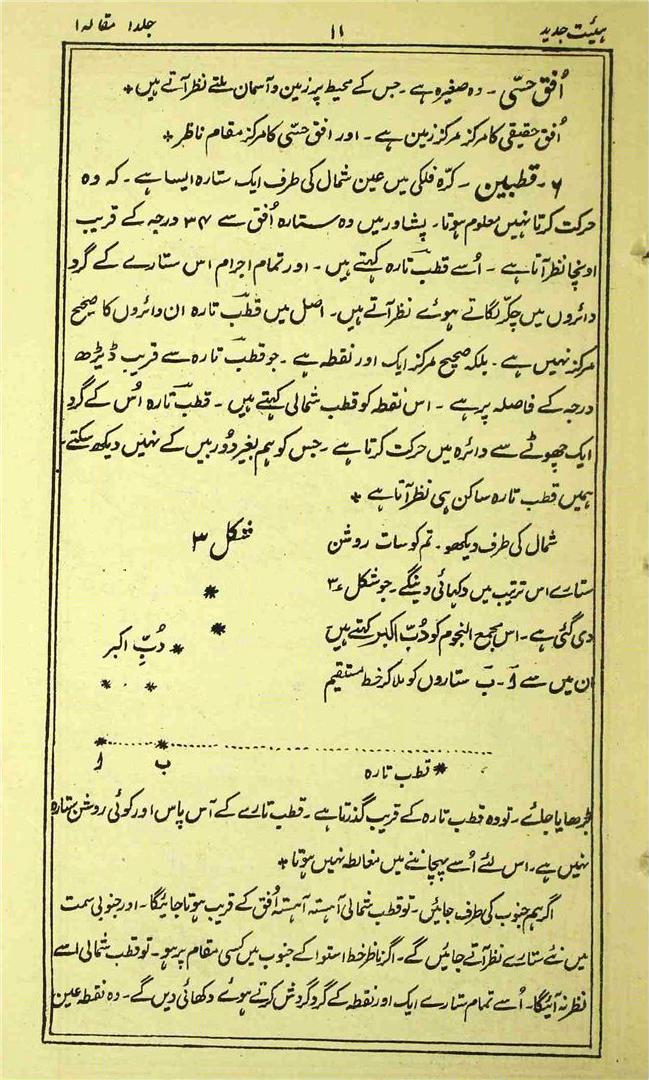 ہیئت جدید ۱۱ جلد۱ مقالہ۱
اُفق حسّی ۔ وہ صغیرہ ہے ۔ جس کے محیط پر زمین و آسمان ملتے نظر آتے ہیں *
اُفق حقیقی کا مرکز مرکز زمین ہے ۔ اور افق حسّی کا مرکز مقام ناظر *
۶۔ قطبین ۔ کرّہ فلکی میں عین شمال کی طرف ایک ستارہ ایسا ہے ۔ کہ وہ
حرکت کرتا نہیں معلوم ہوتا ۔ پشاور میں وہ ستارہ اُفق سے ۳۴ درجہ کے قریب
اونچا نظر آتا ہے ۔ اُسے قطب تارہ کہتے ہیں ۔ اور تمام اجرام اس ستارے کے گرد
دائروں میں چکّر لگاتے ہوئے نظر آتے ہیں ۔ اصل میں قطب تارہ ان دائروں کا صحیح
مرکز نہیں ہے ۔ بلکہ صحیح مرکز ایک اور نقطہ ہے ۔ جو قطب تارہ سے قریب ڈیڑھ
درجہ کے فاصلہ پر ہے ۔ اس نقطہ کو قطب شمالی کہتے ہیں ۔ قطب تارہ اُس کے گرد
ایک چھوٹے سے دائرہ میں حرکت کرتا ہے ۔ جس کو ہم بغیر دُوربیں کے نہیں دیکھ سکتے ۔
ہمیں قطب تارہ ساکن ہی نظر آتا ہے *
شمال کی طرف دیکھو ۔ تم کو سات روشن
شکل ۳
ستارے اس ترتیب میں دکھائی دینگے ۔ جو شکل ۳ میں
دی گئی ہے ۔ اس مجمع النجوم کو دُبّ اکبر کہتے ہیں
دُبِّ اکبر
ان میں سے اَ ۔ بَ ستاروں کو ملا کر خط مستقیم
ا ب
قطب تارہ
بڑھایا جائے ۔ تو وہ قطب تارہ کے قریب گذرتا ہے ۔ قطب تارے کے آس پاس اور کوئی روشن ستارہ
نہیں ہے ۔ اس لئے اُسے پہچاننے میں مغالطہ نہیں ہوتا *
اگر ہم جنوب کی طرف جائیں ۔ تو قطب شمالی آہستہ آہستہ اُفق کے قریب ہوتا جائیگا ۔ اور جنوبی سمت
میں نئے ستارے نظر آتے جائیں گے ۔ اگر ناظر خط استوا کے جنوب میں کسی مقام پر ہو ۔ تو قطب شمالی اسے
نظر نہ آئیگا ۔ اُسے تمام ستارے ایک اور نقطہ کے گرد گردش کرتے ہوئے دکھائی دیں گے ۔ وہ نقطہ عین